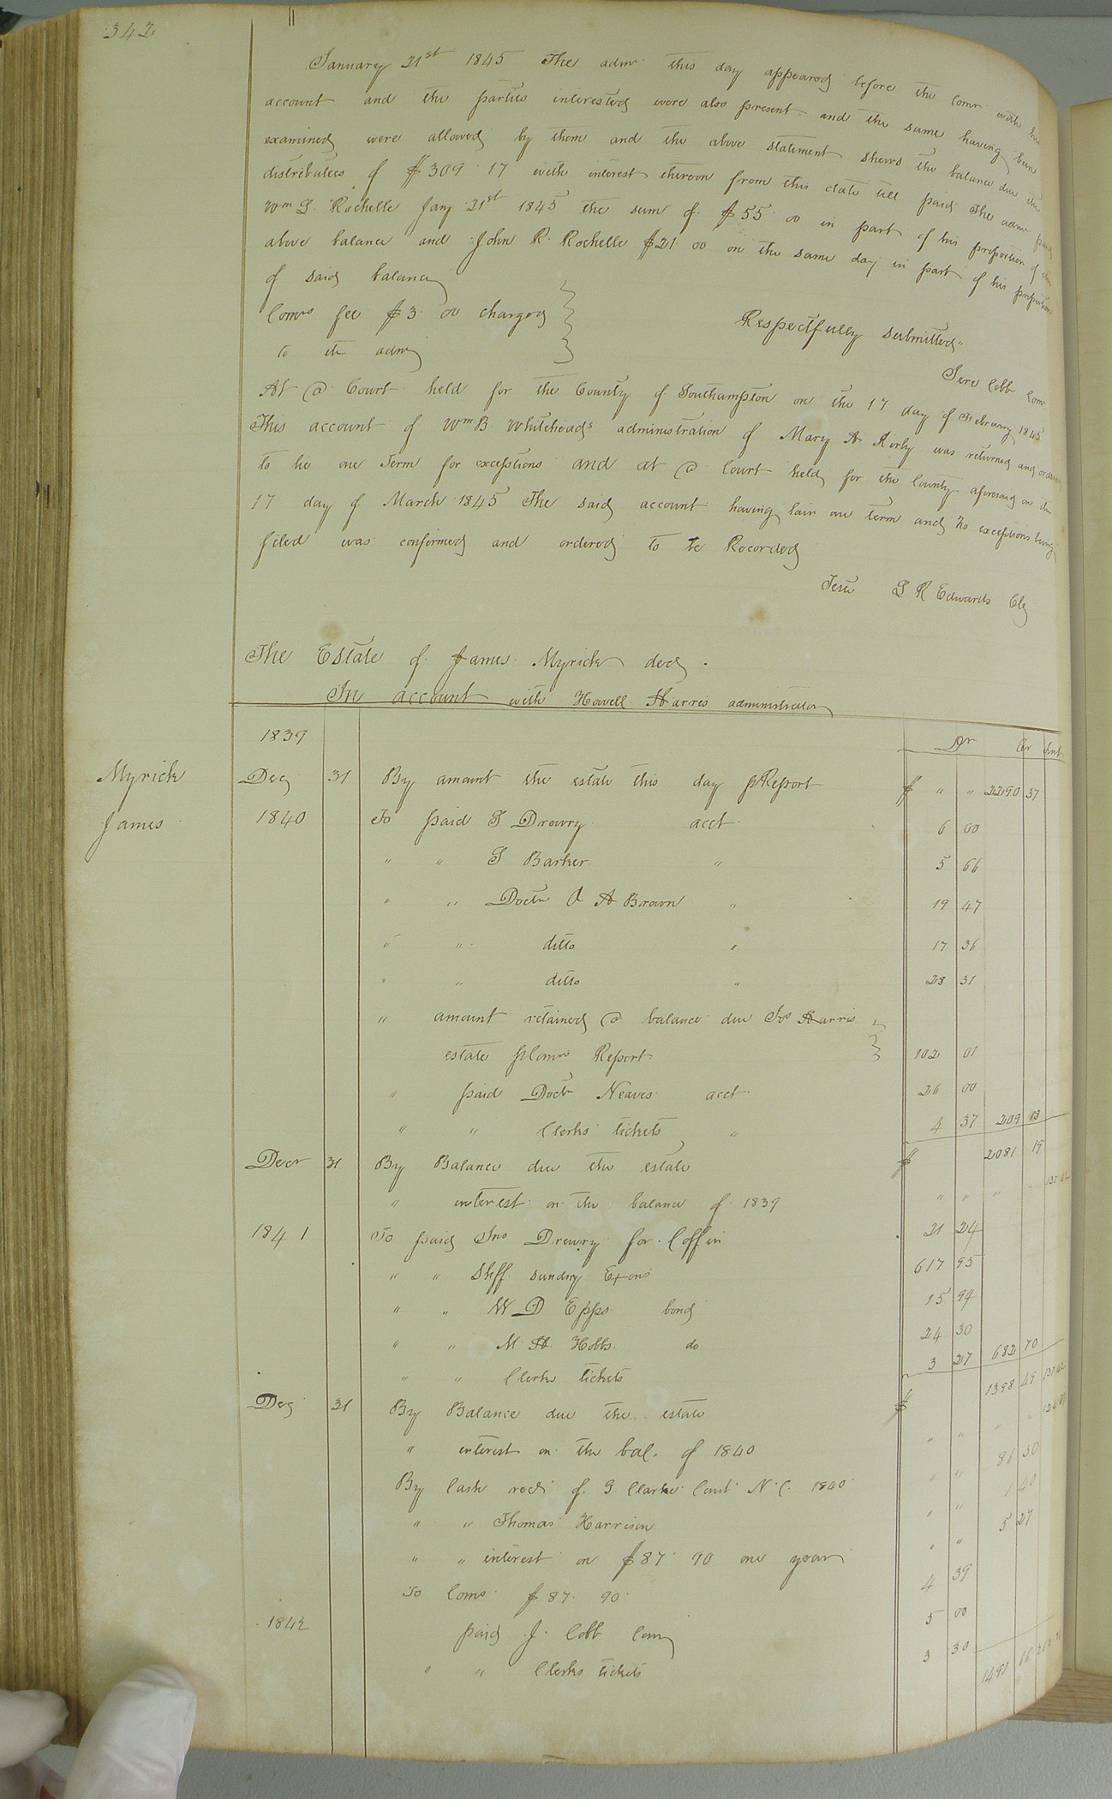 342
January 21st 1845 The adm this day appeared before the Comr with his
account and the parties interested were also present and the same having been
examined were allowed by them and the above statement shews the balance due the
distributees of $309 17 with interest thereon from this date till paid The adm paid
Wm S. Rochelle Jany 21st 1845 the sum of $55 00 in part of his proportion of the
above balance and John R. Rochelle $21 00 on the same day in part of his proportion
of said balance
Comrs fee $3 00 charged
to the adm
Respectfully submitted
Jere Cobb Comr
At a Court held for the County of Southampton on the 17 day of February 1845
This account of Wm B Whiteheads administration of Mary A. was returned and ordered
to lie one Term for exceptions and at a Court held for the County aforesaid on the
17 day of March 1845 The said account having lain one term and no exceptions being
filed was confirmed and ordered to be Recorded
Teste L R Edwards Clk
The Estate of James Myrick decd.
In account with Howell Harris administrator
1839 Dr Cr Int
Myrick
James
Decr 31 By amount the estate this day p Report $ " " 2290 37
1840 To paid S Drewry acct 6 00
" " S Barker " 5 66
" " Doctr A A Brown " 19 47
" " ditto " 17 36
" " ditto " 28 31
" amount retained a balance due Jos Harris
estate p Comr Report 102 01
" paid Doctr Neaves acct 26 00
" " Clerks tickets " 4 37 209 18
Decr 31 By Balance due the estate $ 2081 19
" interest on the balance of 1839 " " "
1841 To paid Jno Drewry for Coffin 21 24
" " Shff sundry Exons 617 95
" " W D Epps bond 15 94
" " M H. Hobbs do 24 30
" " Clerks tickets 3 27 682 70
Decr 31 By Balance due the estate $ 1398 49
" interest on the bal. of 1840 " "
By Cash recd of G. Clarke Court N.C. 1840 " " 86 50
" " Thomas Harrison " " 1 40
" " interest on $87 90 one year " " 5 27
To Coms $87 90 4 39
1842 paid J. Cobb Comr 5 00
" " Clerks tickets 3 30 1491 66